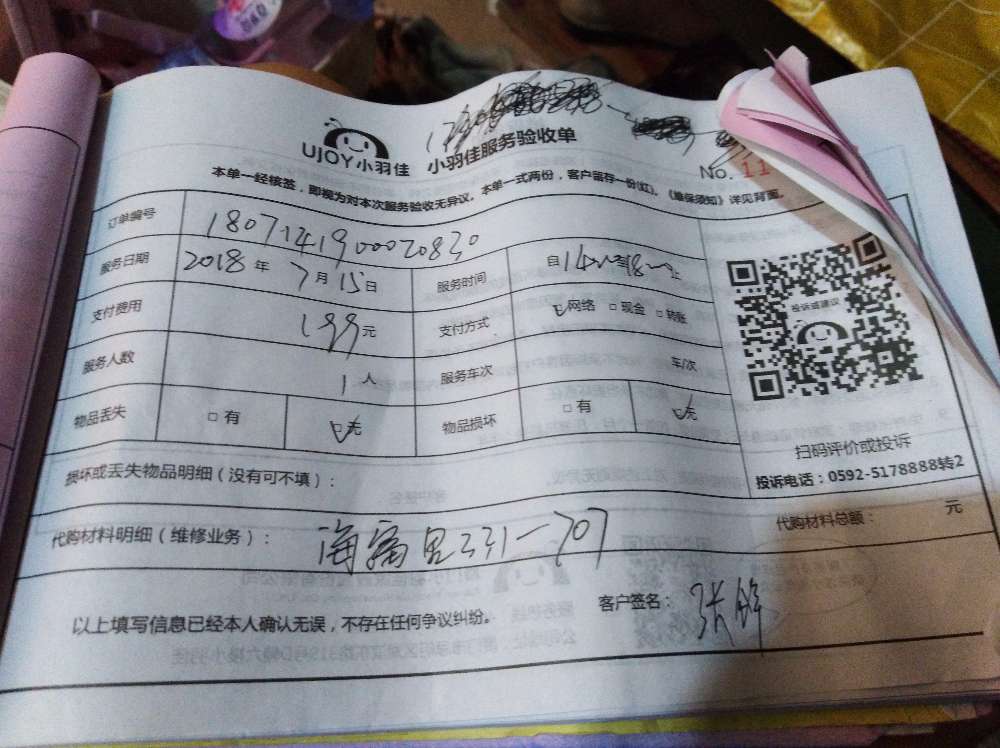 UJOY小羽佳 小羽佳服务验收单
No. 11
本单一经核签，即视为对本次服务验收无异议。本单一式两份，客户留存一份(红)。《维保须知》详见背面。
订单编号 1807141900020830
服务日期 2018年7月15日 服务时间 自14:00至18:00止
支付费用 199元 支付方式 网络 □现金 □转账
服务人数 1人 服务车次 车/次
物品丢失 □有 无 物品损坏 □有 无
投诉或建议
扫码评价或投诉
投诉电话：0592-5178888转2
损坏或丢失物品明细（没有可不填）：
代购材料明细（维修业务）： 331-707
代购材料总额： 元
以上填写信息已经本人确认无误，不存在任何争议纠纷。
客户签名： 张锋